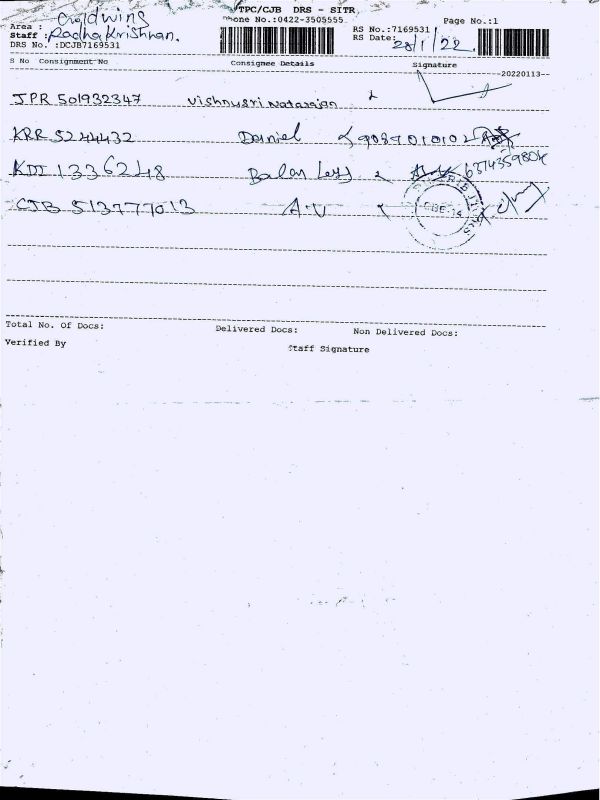 TPC/CJB DRS - SITR
Area : Goldwins
Phone No.:0422-3505555
Page No.:1
Staff : Radha Krishnan.
RS No.:7169531
DRS No. :DCJB7169531
RS Date: 28/1/22.
S No Consignment No Consignee Details Signature
--20220113--
JPR 501932347 Vishnusri Natarajan
KRR 5244432 Daniel 9089010102
KDI 1336248 Balan 637435980
CJB 513777013 A.V
Total No. Of Docs: Delivered Docs: Non Delivered Docs:
Verified By Staff Signature